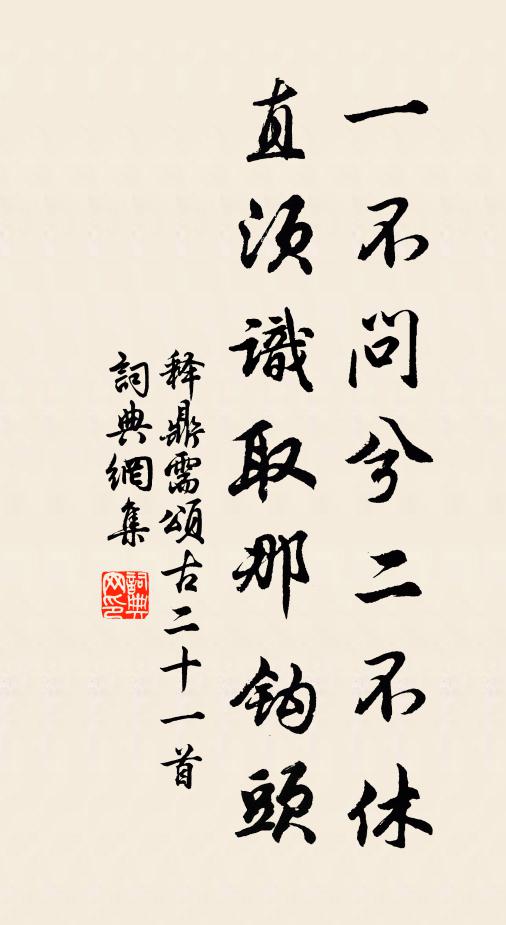 一不问兮二不休
直须識取那钩頭
释鼎需頌古二十一首
詞典網集
詞典
网印